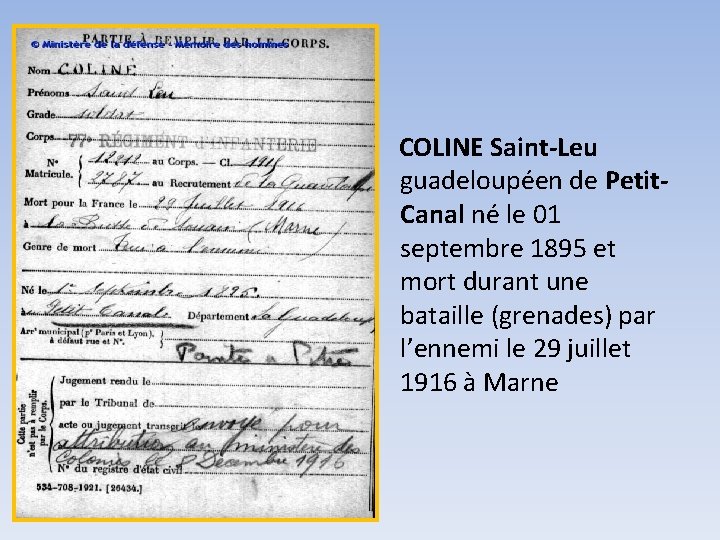 PARTIE À REMPLIR PAR LE CORPS.
© Ministère de la défense - Mémoire des hommes
Nom COLINE
Prénoms Saint Leu
Grade soldat
Corps 77e RÉGIMENT d'INFANTERIE
N° 12212 au Corps. — Cl. 1915
Matricule. 2787 au Recrutement de la Guadeloupe
Mort pour la France le 29 juillet 1916
à (Marne)
Genre de mort tué à l'ennemi
Né le 1er septembre 1895
à Petit Canal Département la Guadeloupe
Arrt municipal (pr Paris et Lyon),
à défaut rue et N°.
Pointe à Pitre
Cette partie
n'est pas à remplir
par le Corps.
Jugement rendu le
par le Tribunal de
acte ou jugement transcrit envoyé pour
attribution au ministre des
Colonies le Décembre 1916
N° du registre d'état civil
534-708-1921. [26434.]
COLINE Saint-Leu
guadeloupéen de Petit-
Canal né le 01
septembre 1895 et
mort durant une
bataille (grenades) par
l'ennemi le 29 juillet
1916 à Marne